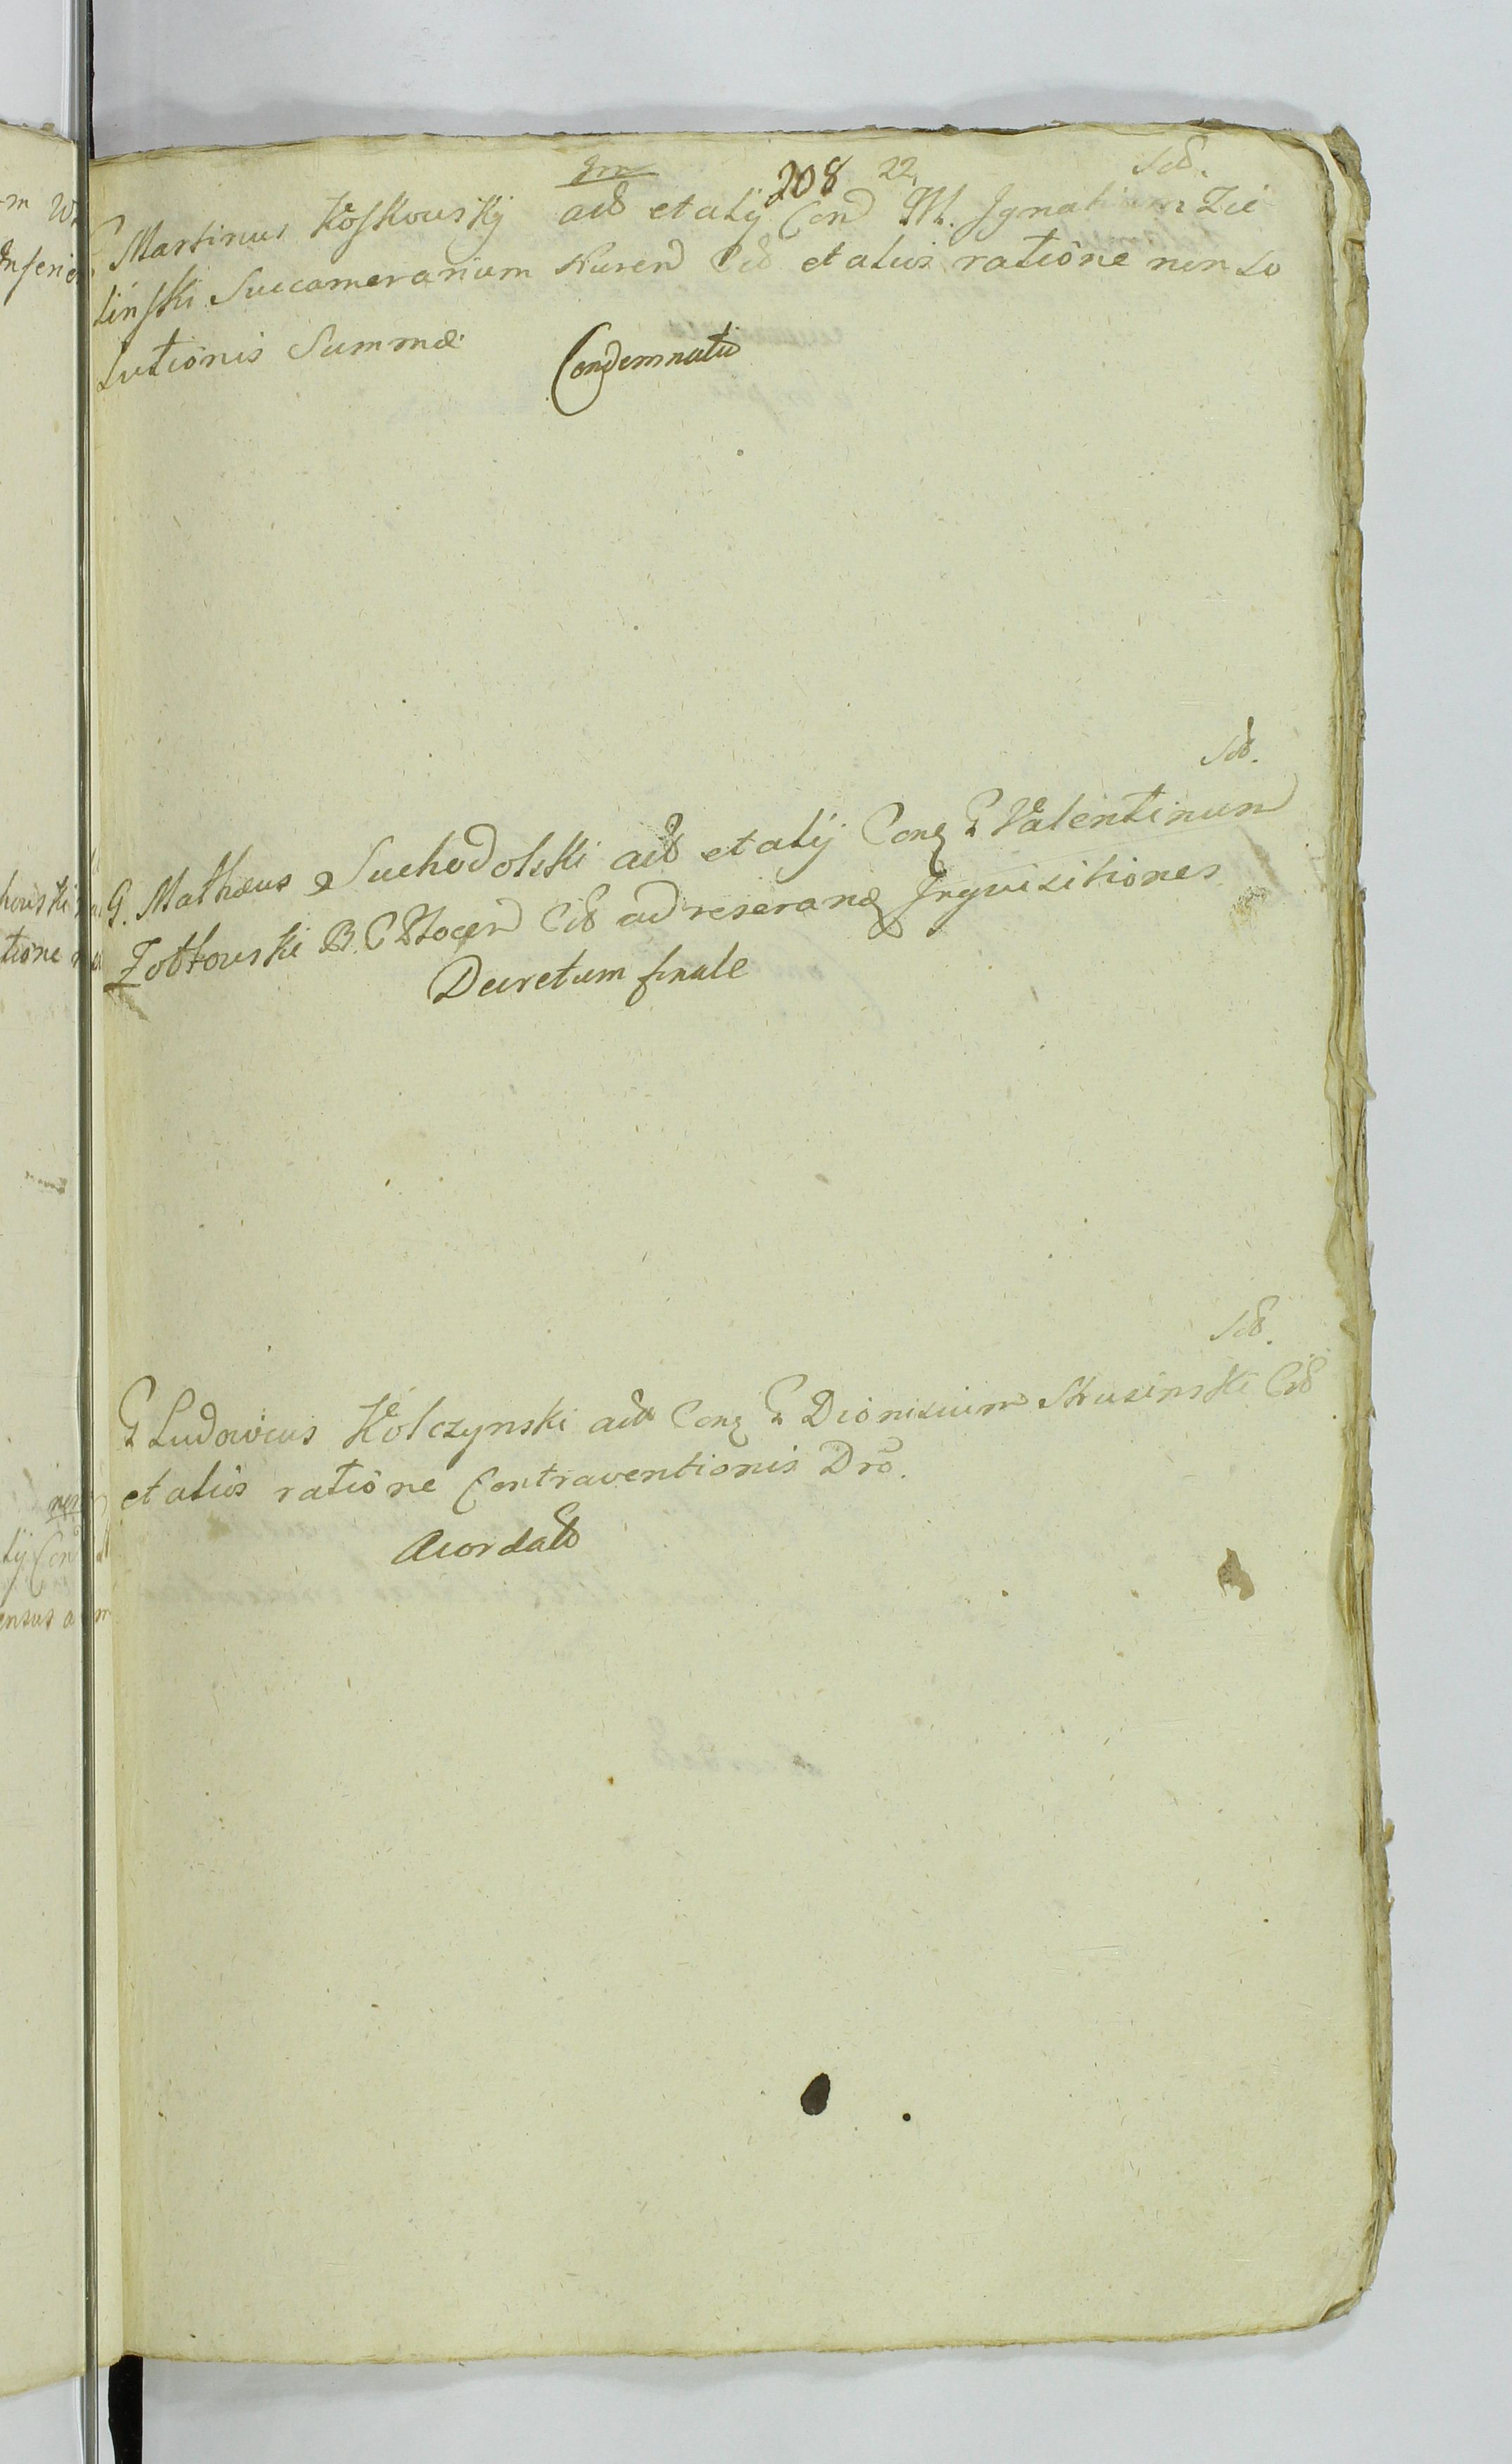 208 22
G Martinus Koskowskÿ et alÿ Con M. Ignatium Zie
linski Succamerarium Nuren Cit et alios ratione non so
lutionis Summæ
Condemnatio
G. Mathæus Suchodolski act et alÿ Con G Valentinum
Zołtowski B. C Płocen Cit ad reseran Inqvisitiones
Decretum finale
G Ludovicus Kolczynski act Con G Dionisium Cit
et alios ratione Contraventionis Drō.
Acordato